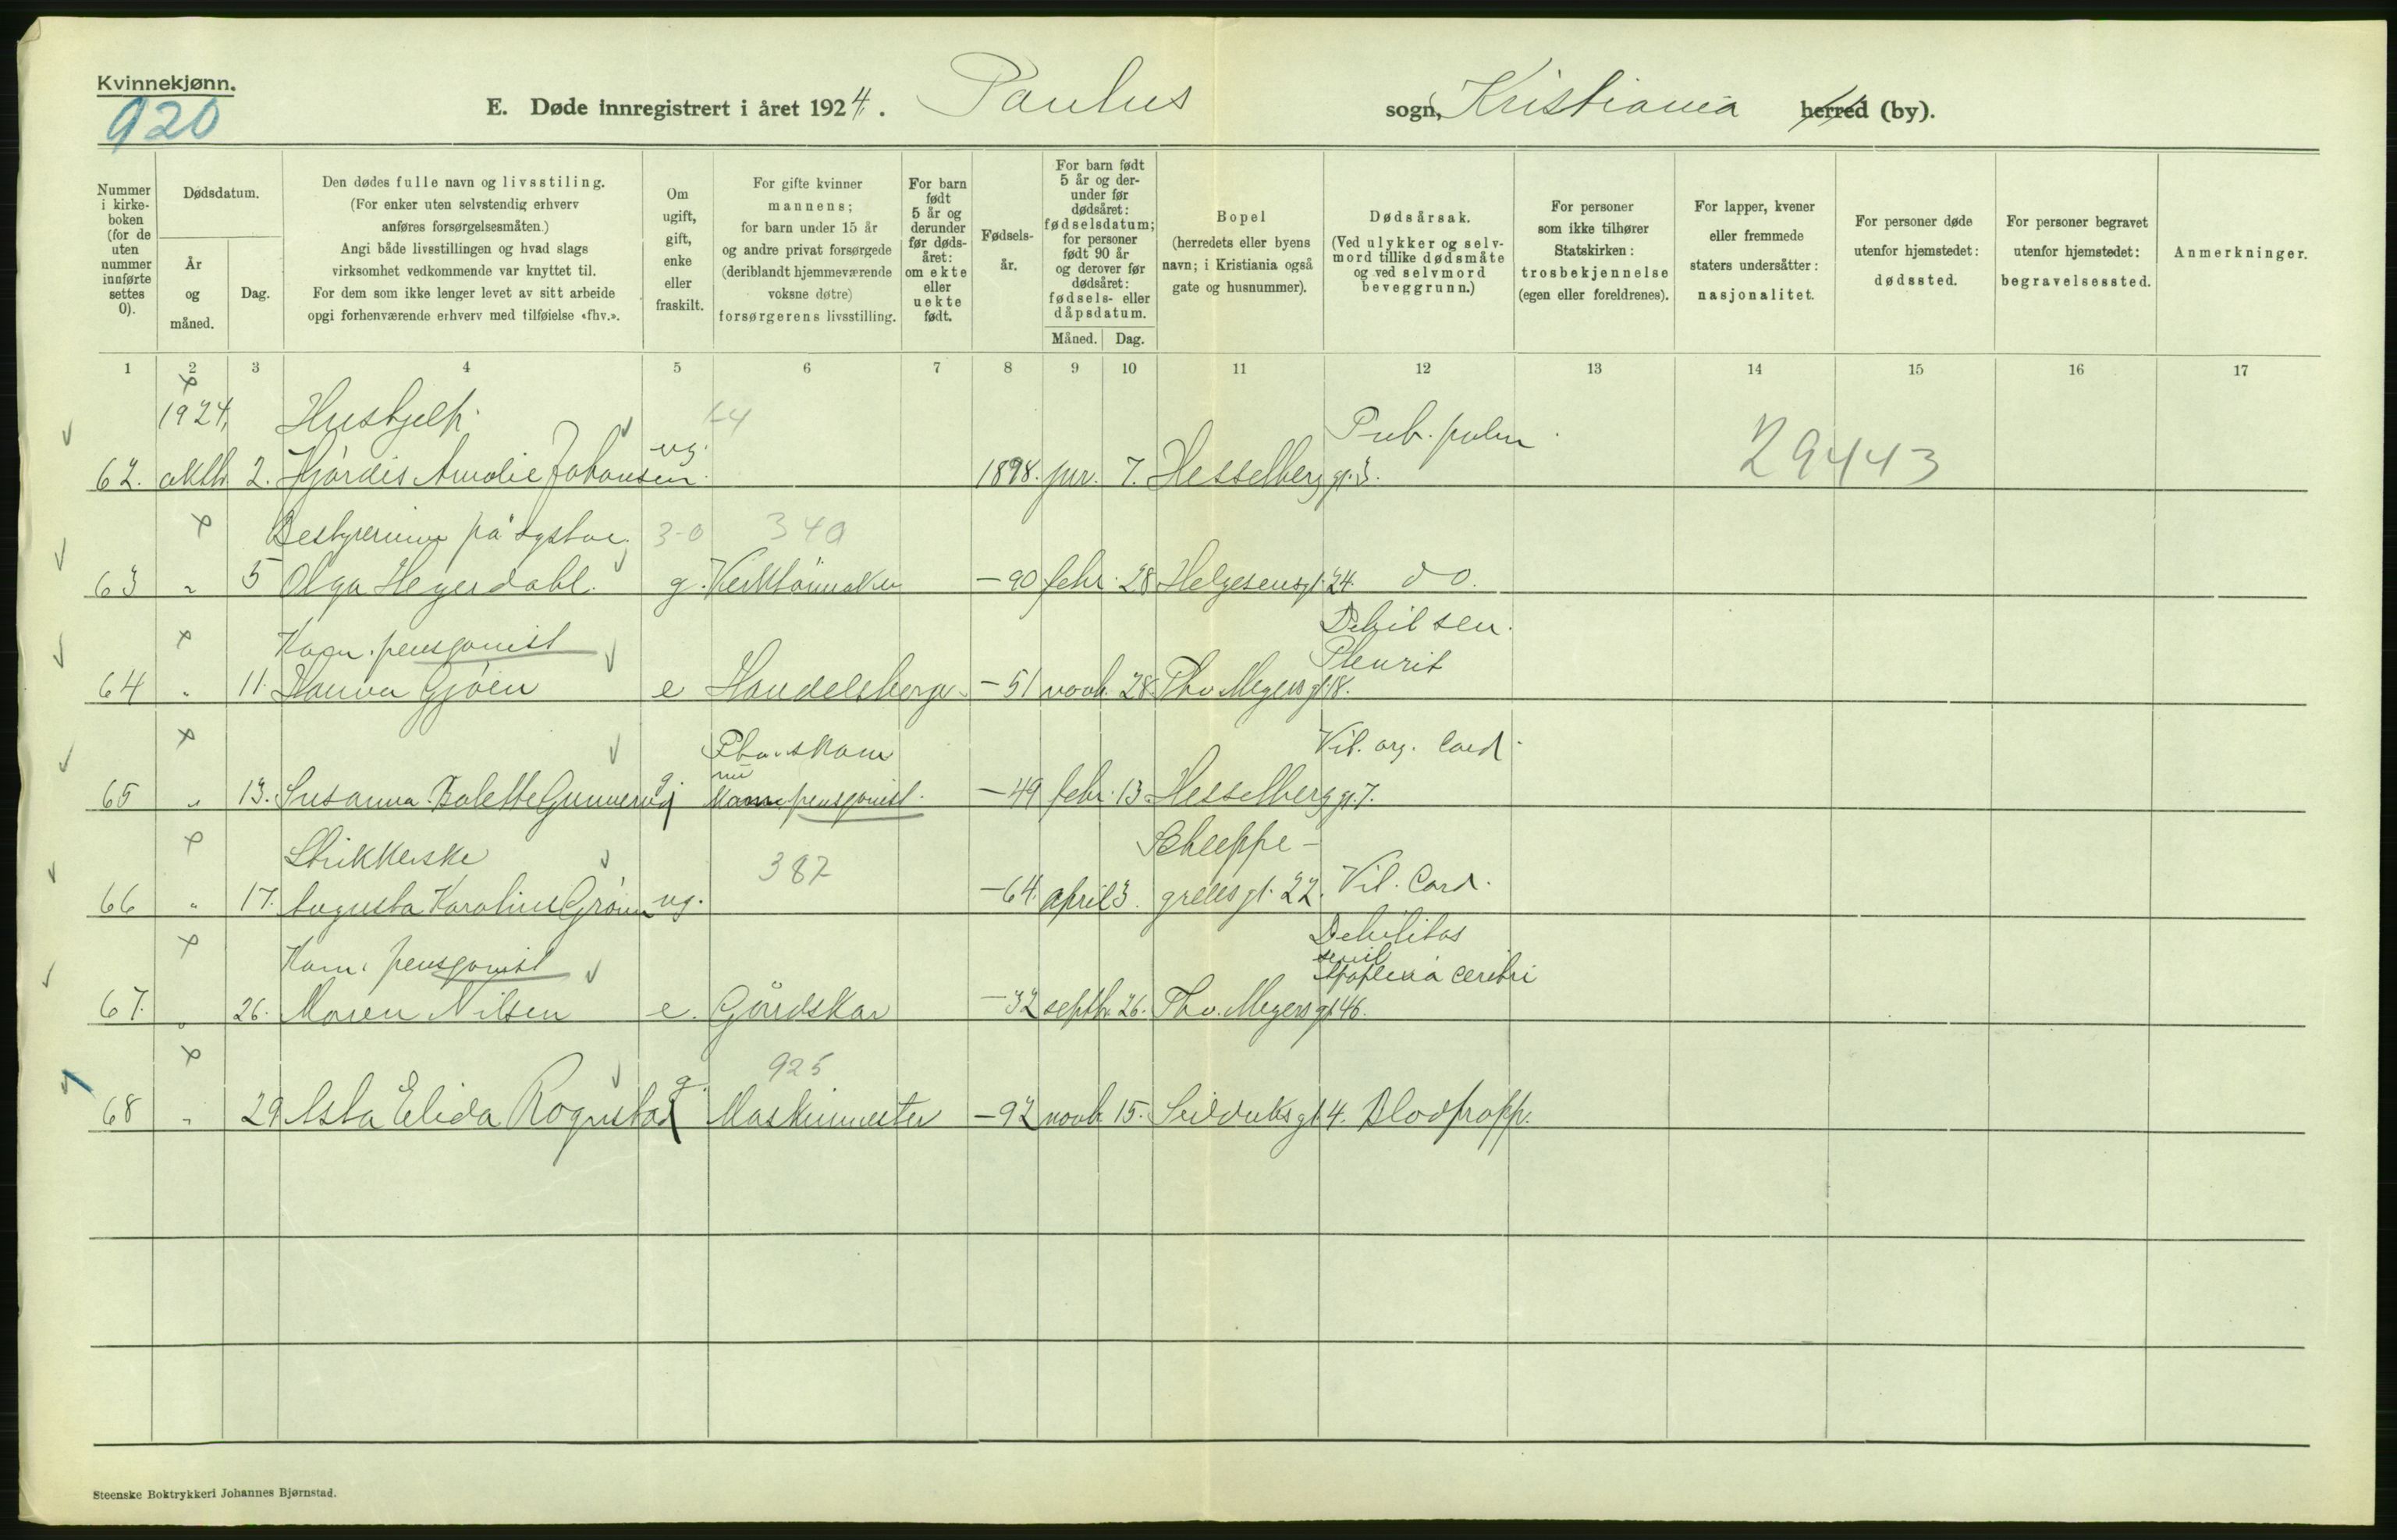 Kvinnekjønn.
920
E. Døde innregistrert i året 1924. Paulus sogn, Kristiania herred (by).
Nummer i kirkeboken (for de uten nummer innførte settes 0).
Dødsdatum.
År og måned.
Dag.
Den dødes fulle navn og livsstiling.
(For enker uten selvstendig erhverv
anføres forsørgelsesmåten.)
Angi både livsstillingen og hvad slags
virksomhet vedkommende var knyttet til.
For dem som ikke lenger levet av sitt arbeide
opgi forhenværende erhverv med tilføielse «fhv.».
Om ugift, gift, enke eller fraskilt.
For gifte kvinner
mannens;
for barn under 15 år
og andre privat forsørgede
(deriblandt hjemmeværende
voksne døtre)
forsørgerens livsstilling.
For barn født 5 år og derunder før dødsåret: om ekte eller uekte født.
Fødselsår.
For barn født 5 år og derunder før dødsåret: fødselsdatum; for personer født 90 år og derover før dødsåret: fødsels- eller dåpsdatum.
Måned. Dag.
Bopel
(herredets eller byens
navn; i Kristiania også
gate og husnummer).
Dødsårsak.
(Ved ulykker og selvmord tillike dødsmåte og ved selvmord beveggrunn.)
For personer
som ikke tilhører
Statskirken:
trosbekjennelse
(egen eller foreldrenes).
For lapper, kvener
eller fremmede
staters undersåtter:
nasjonalitet.
For personer døde
utenfor hjemstedet:
dødssted.
For personer begravet
utenfor hjemstedet:
begravelsessted.
Anmerkninger.
1 2 3 4 5 6 7 8 9 10 11 12 13 14 15 16 17
1924, Hushjelp
62. oktb. 2. Hjørdis Amalie Johansen ug. 1898. jnr. 7. Hesselberg gt. 3. 29443
Bestyrerinne på systue 3-0 340
63 " 5 Olga Hegerdahl. g. Verktøimaker -90 febr. 28 Helgesensgt. 24. do.
Kom. pensjonist Debil sen. Pleurit
64 " 11. Hanna Gjøen e Handelsborger -51 novb. 28. Thv. Meyers gt. 18.
Vit. org. Cord.
65 " 13. Susanna Bolette g nu pensjonist. -49 febr. 13 Hesselberg gt. 7.
Strikkerske 387 Schleppe-
66 " 17. Augusta Karoline Grønn ug. -64. april 3. grells gt. 22. Vit. Cord.
Kom. pensjonist Debilitas senil Apoplexia cerebri
67. " 26. Maren Nilsen e. Gårdskar -32 septb. 26. Thv. Meyers gt. 46.
925
68 " 29 Asta Elida Rognstad g. Maskinmester -92 novb. 15. Seilduksgt. 4. Blodpropp.
Steenske Boktrykkeri Johannes Bjørnstad.